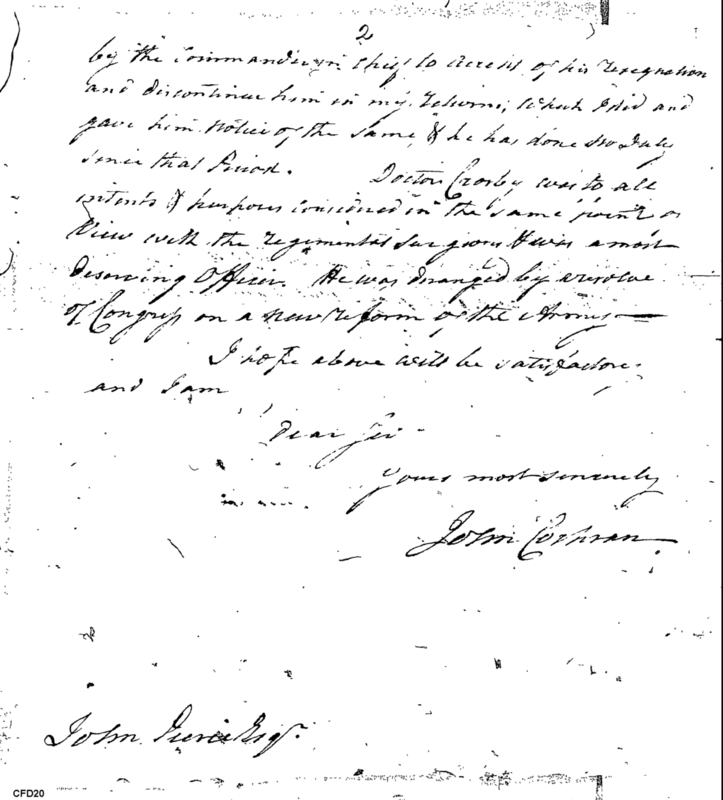 2
by the Commander in Chief to accept of his resignation
and discontinue him in my returns; which I did and
gave him notice of the same, & he has done no duty
since that Period. Doctor Crosby was to all
intents & purposes considered in the same point of
View with the regimental Surgeons He was a most
deserving Officer. He was deranged by a resolve
of Congress on a new reform of the Army—
I hope above will be satisfactory
and I am
Dear Sir
Yours most sincerely
John Cochran
John Pierce Esqr.
CFD20